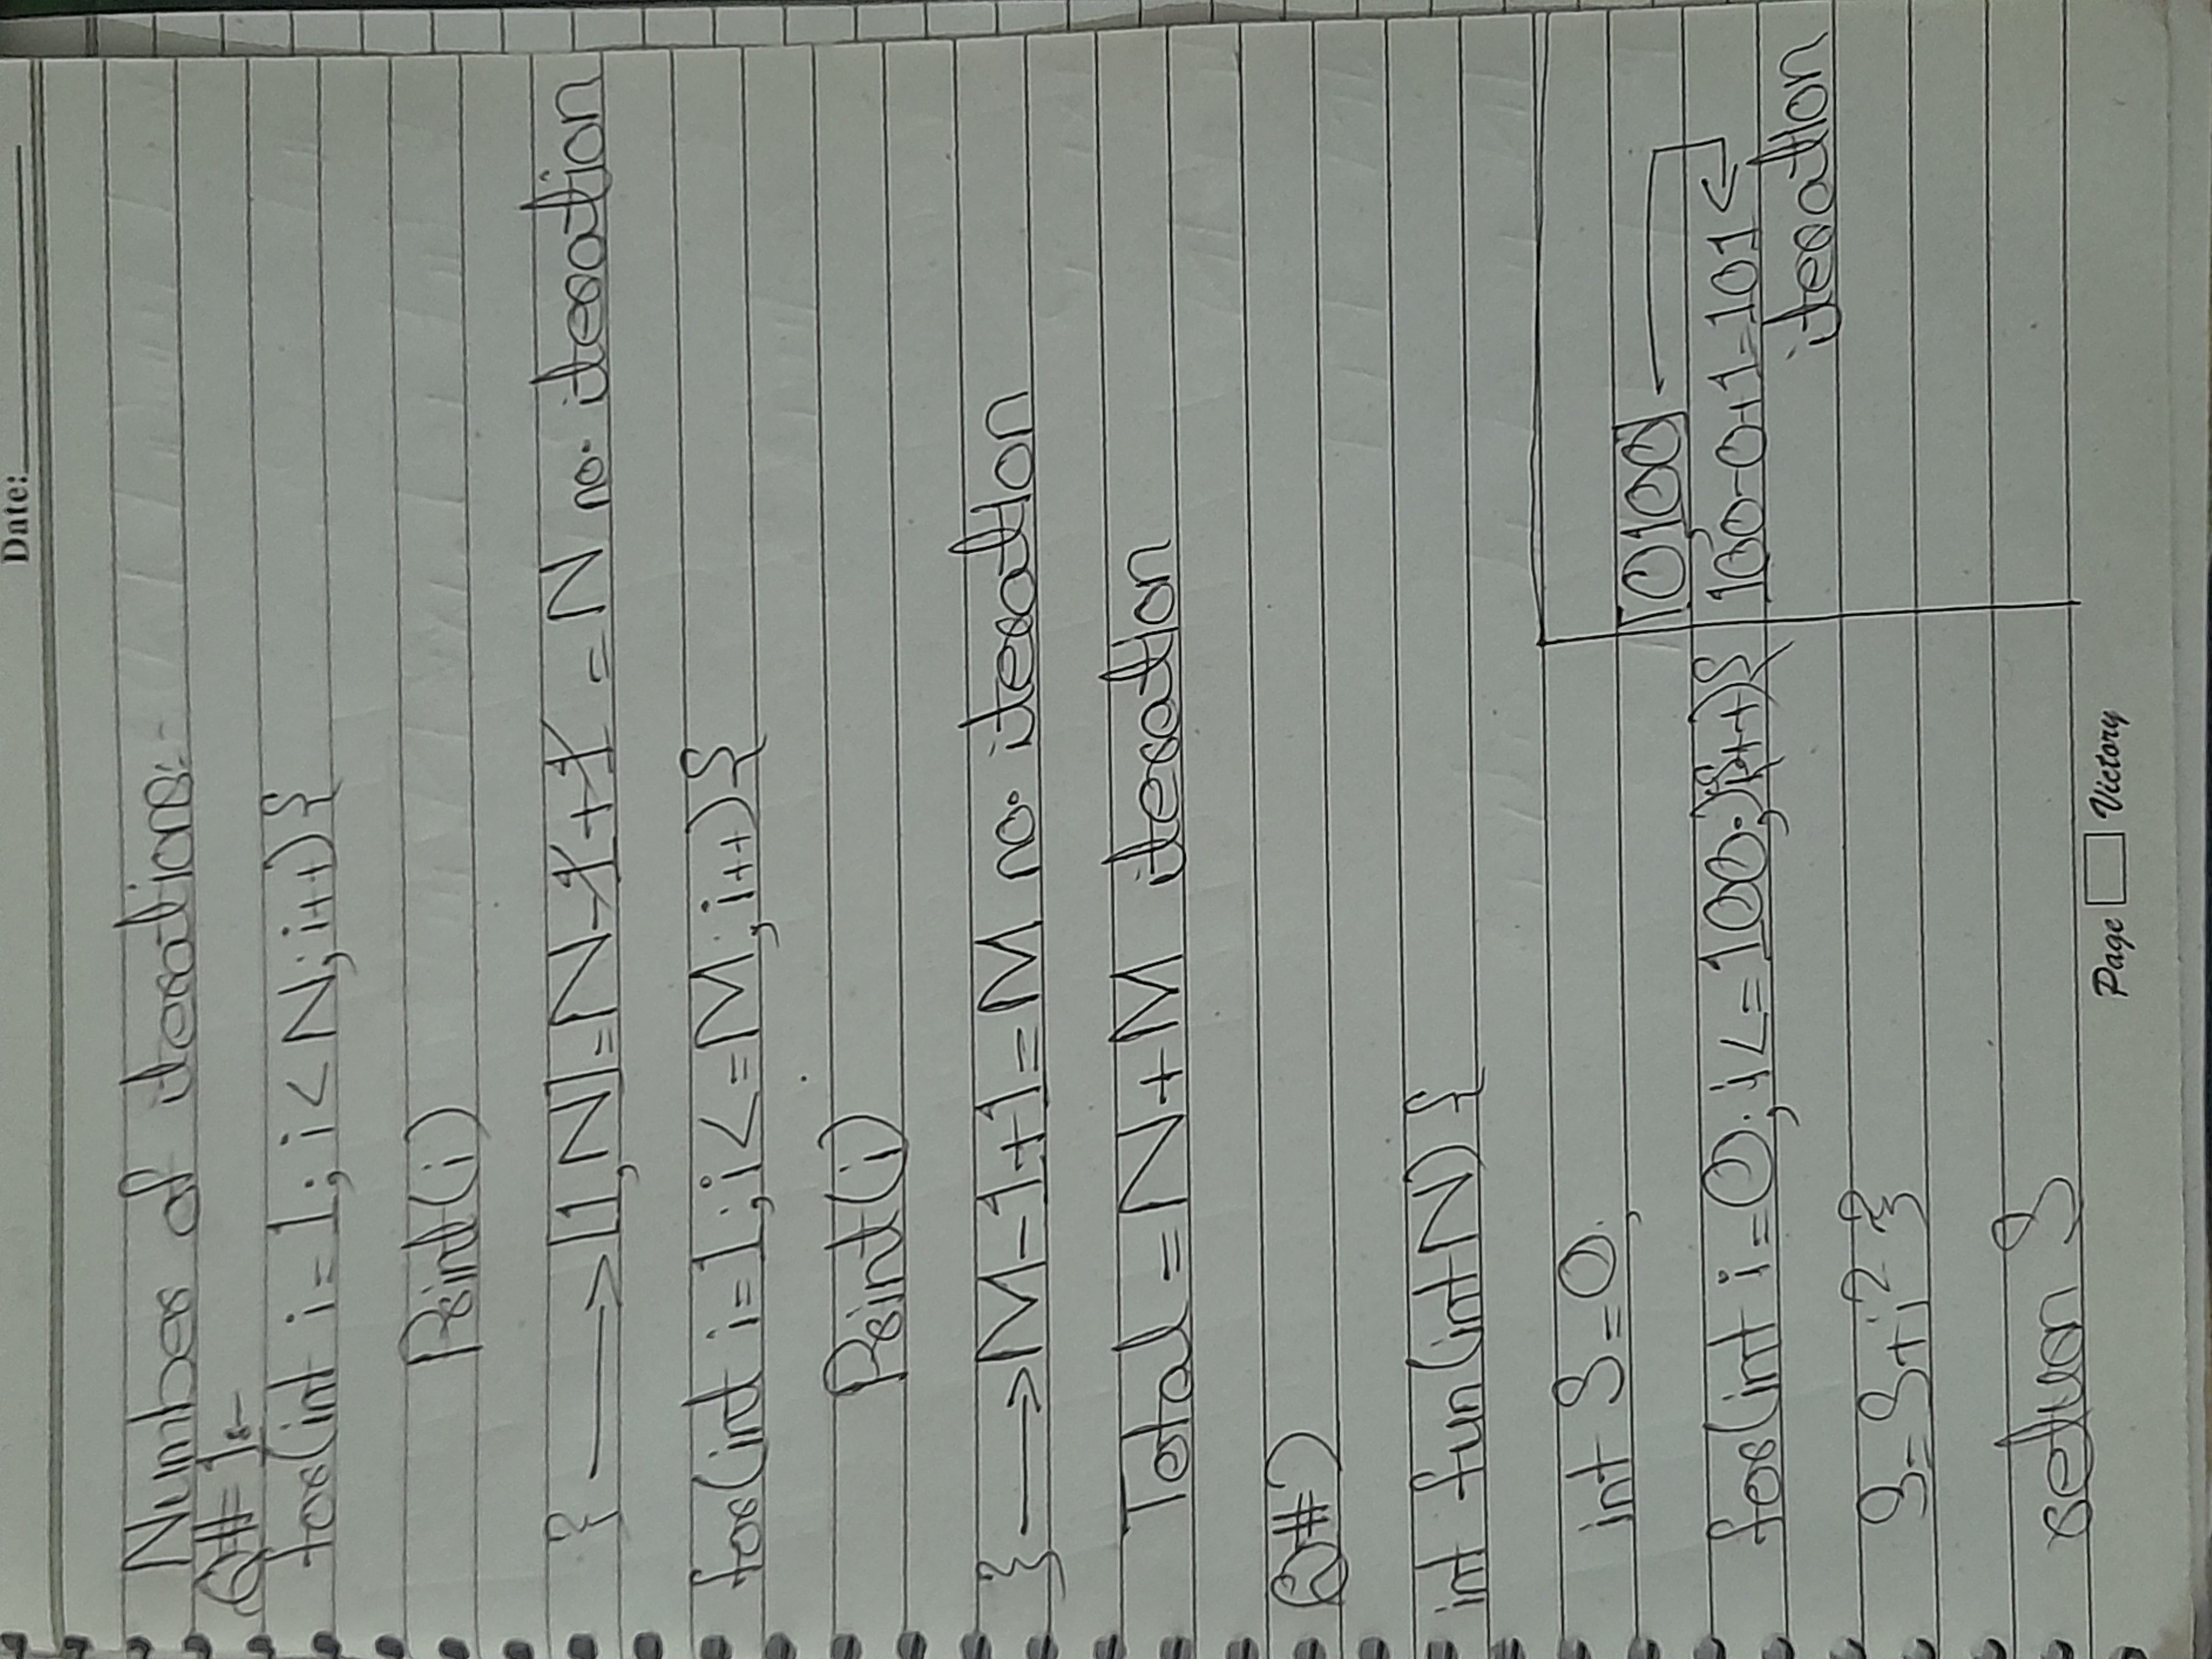 Date:
Number of iterations:-
Q# 1:-
for(int i=1; i<N; i++){
Print(i)
} → [1,N]=N-1+1 = N no. iteration
for(int i=1; i<=M; i++){
Print(i)
} → M-1+1=M no. iteration
Total = N+M iteration
Q#2
int fun(int N) {
int S=0;
[0,100]
for(int i=0; i<=100; i++){
100-0+1=101
iteration
S=S+i² }
return S
Page Victory